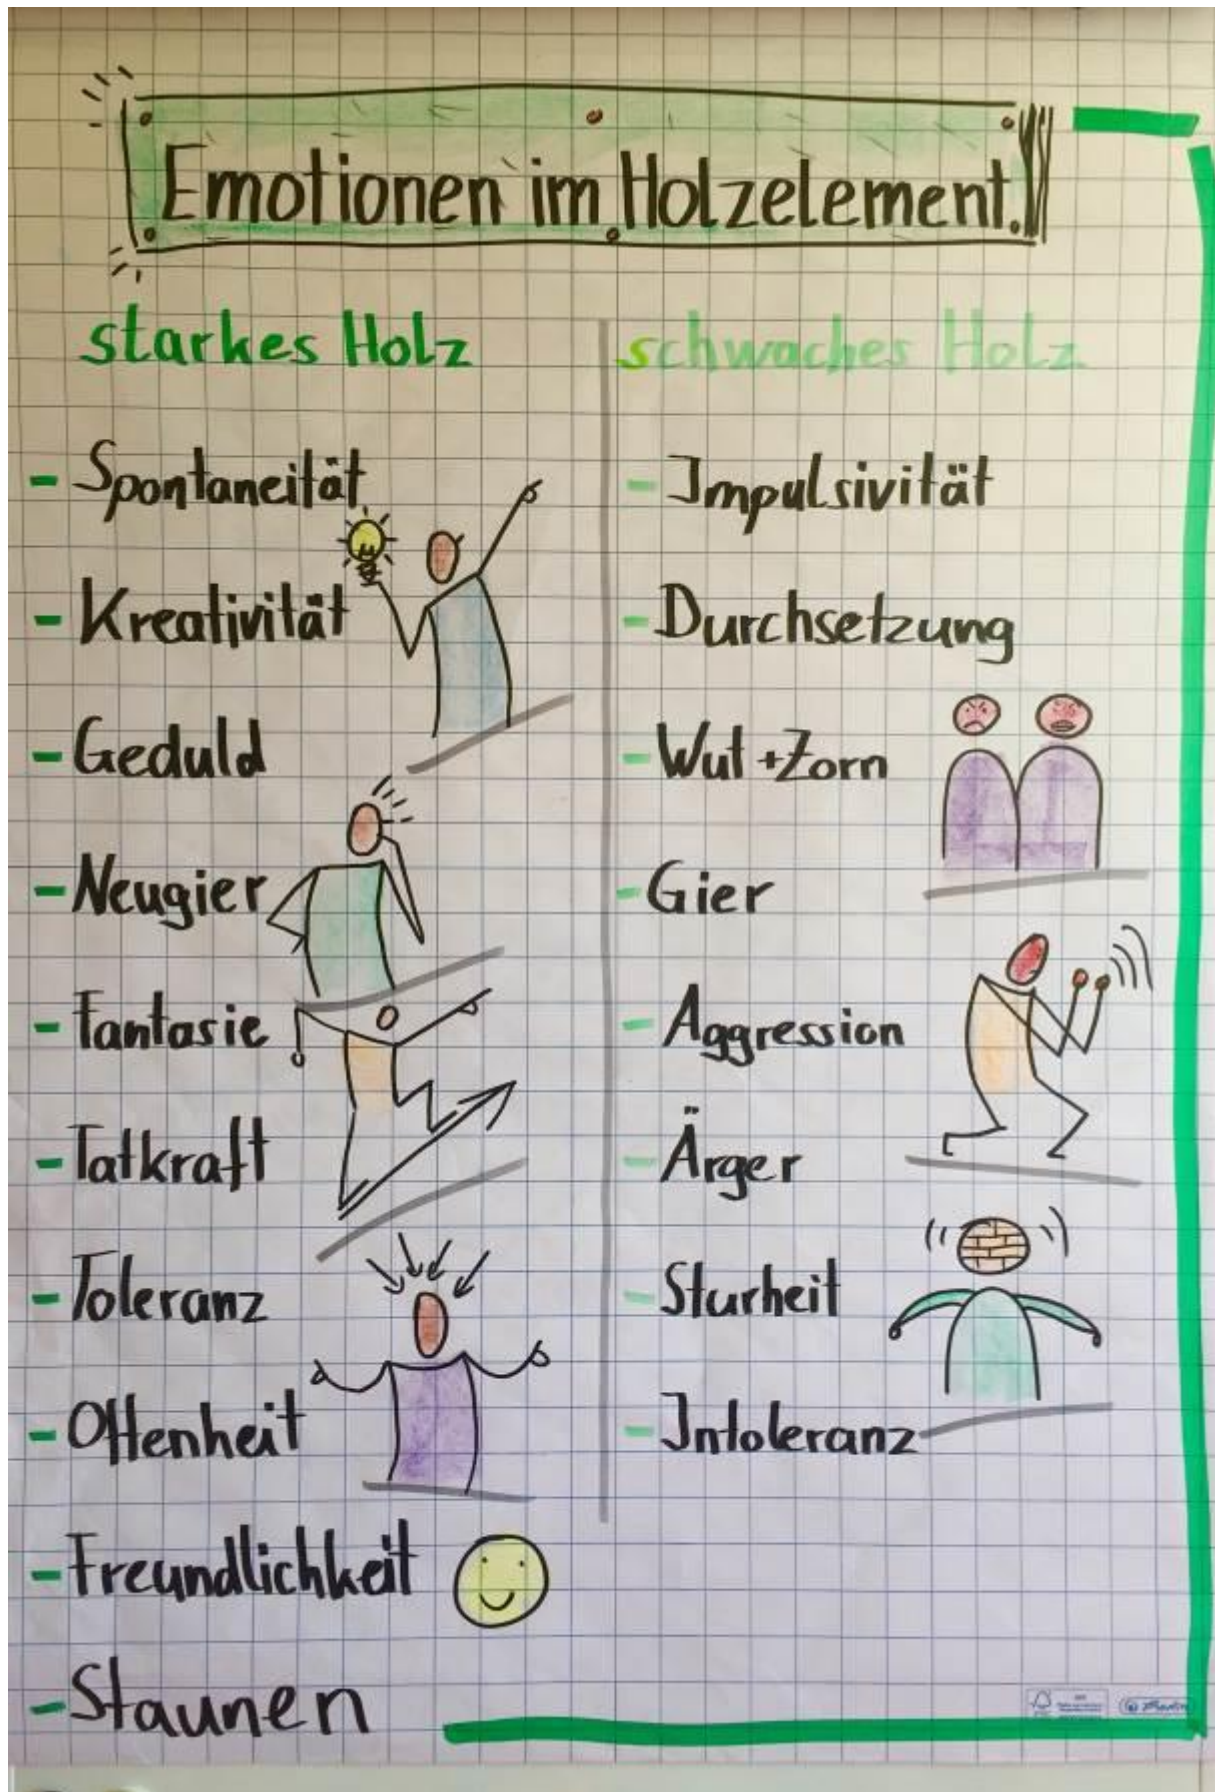 Emotionen im Holzelement.
starkes Holz
- Spontaneität
- Kreativität
- Geduld
- Neugier
- Fantasie
- Tatkraft
- Toleranz
- Offenheit
- Freundlichkeit
- Staunen
schwaches Holz
- Impulsivität
- Durchsetzung
- Wut + Zorn
- Gier
- Aggression
- Ärger
- Sturheit
- Intoleranz